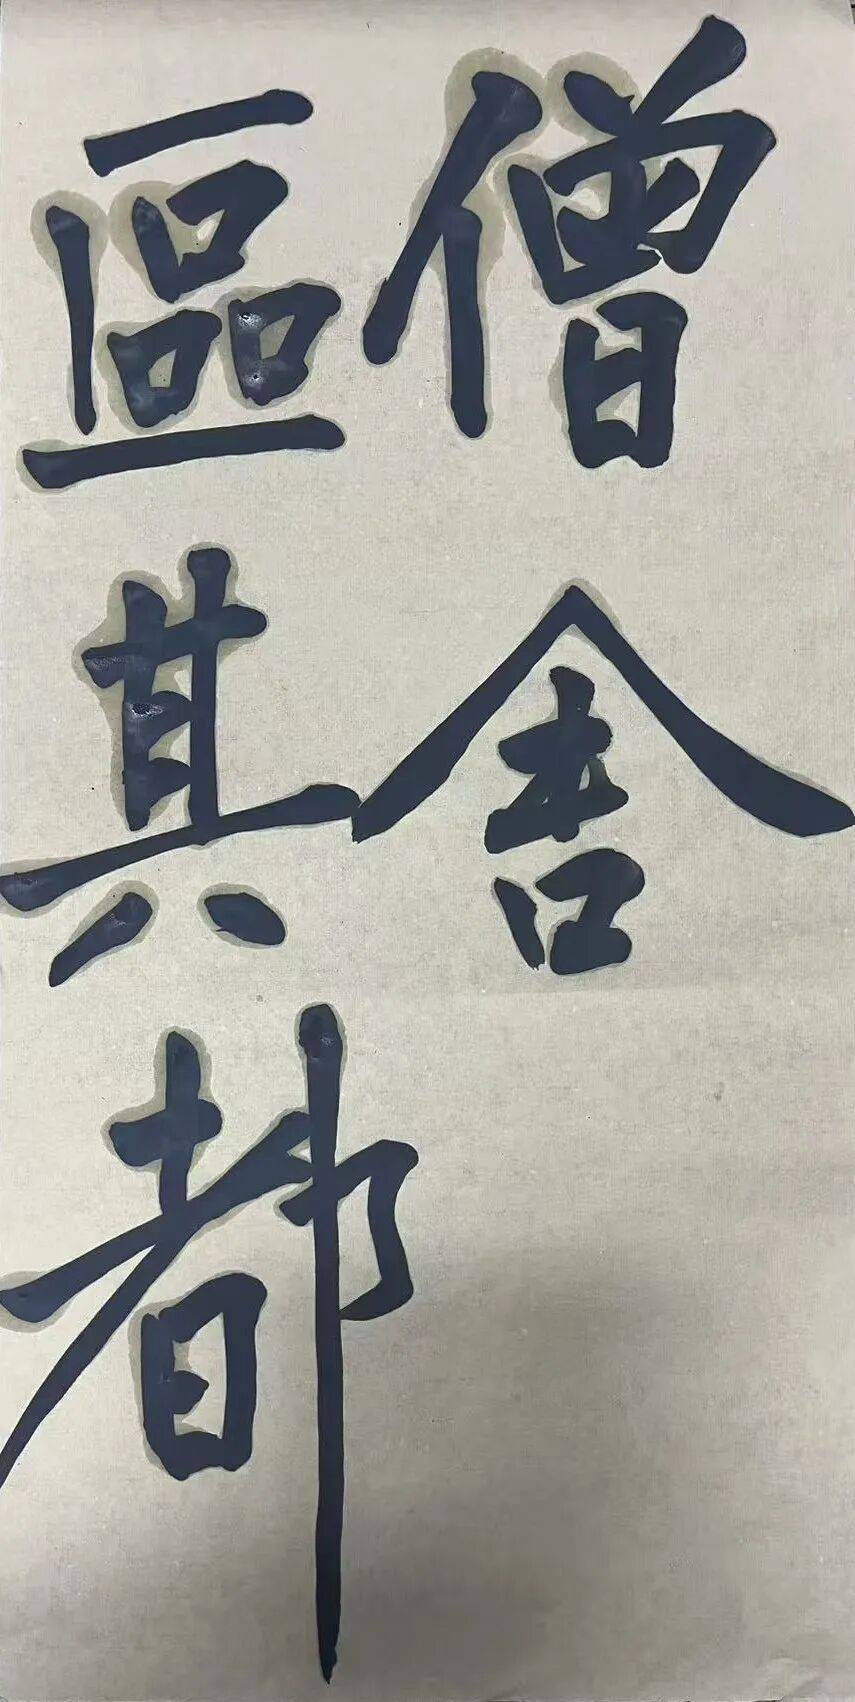 僧舍
區其都